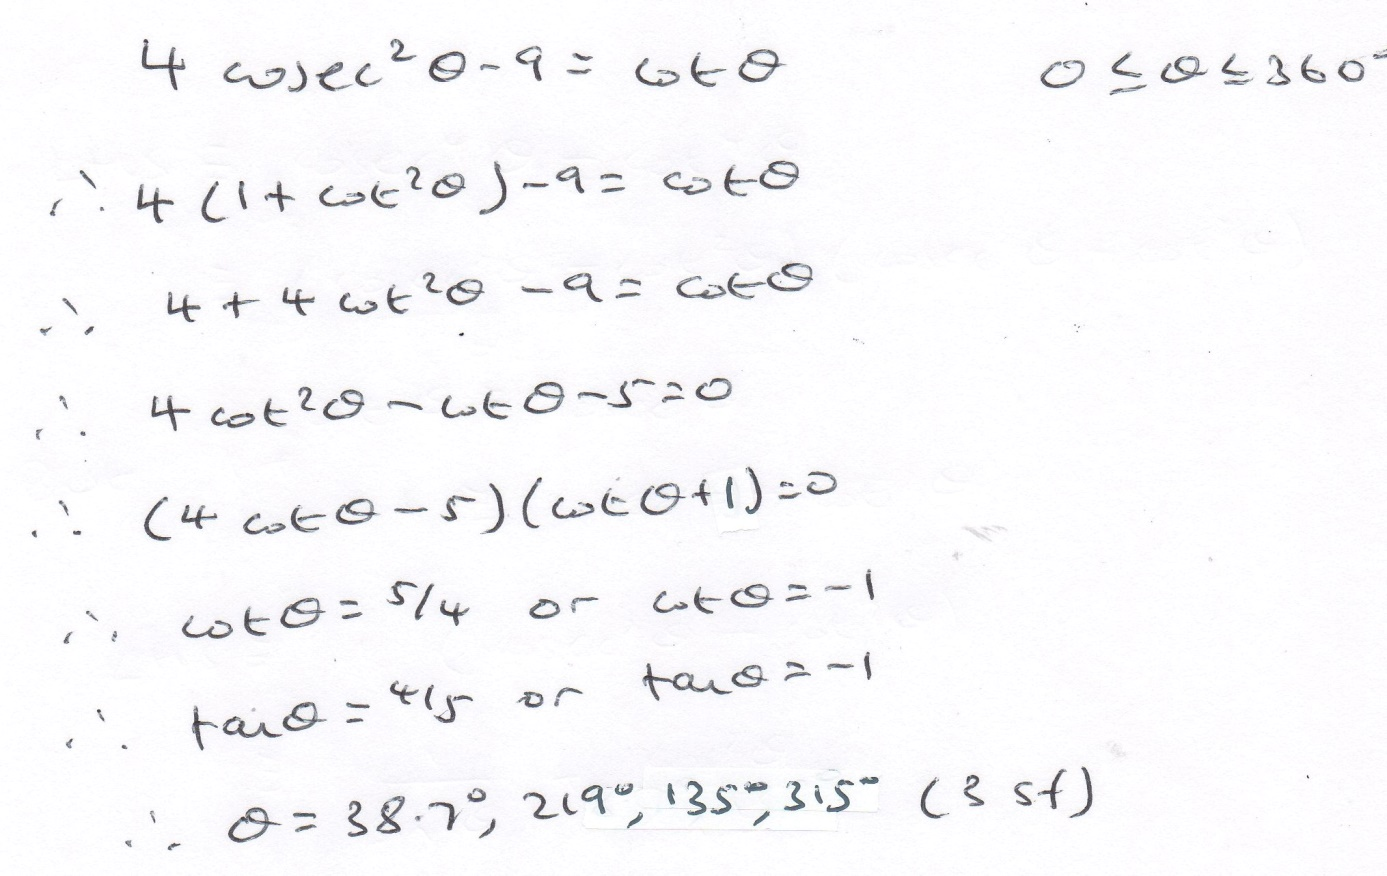 4 cosec²θ-9 = cotθ 0≤θ≤360°
∴ 4(1+cot²θ)-9 = cotθ
∴ 4+4cot²θ-9 = cotθ
∴ 4cot²θ-cotθ-5=0
∴ (4cotθ-5)(cotθ+1)=0
∴ cotθ=5/4 or cotθ=-1
∴ tanθ=4/5 or tanθ=-1
∴ θ=38.7°, 219°, 135°, 315° (3 sf)